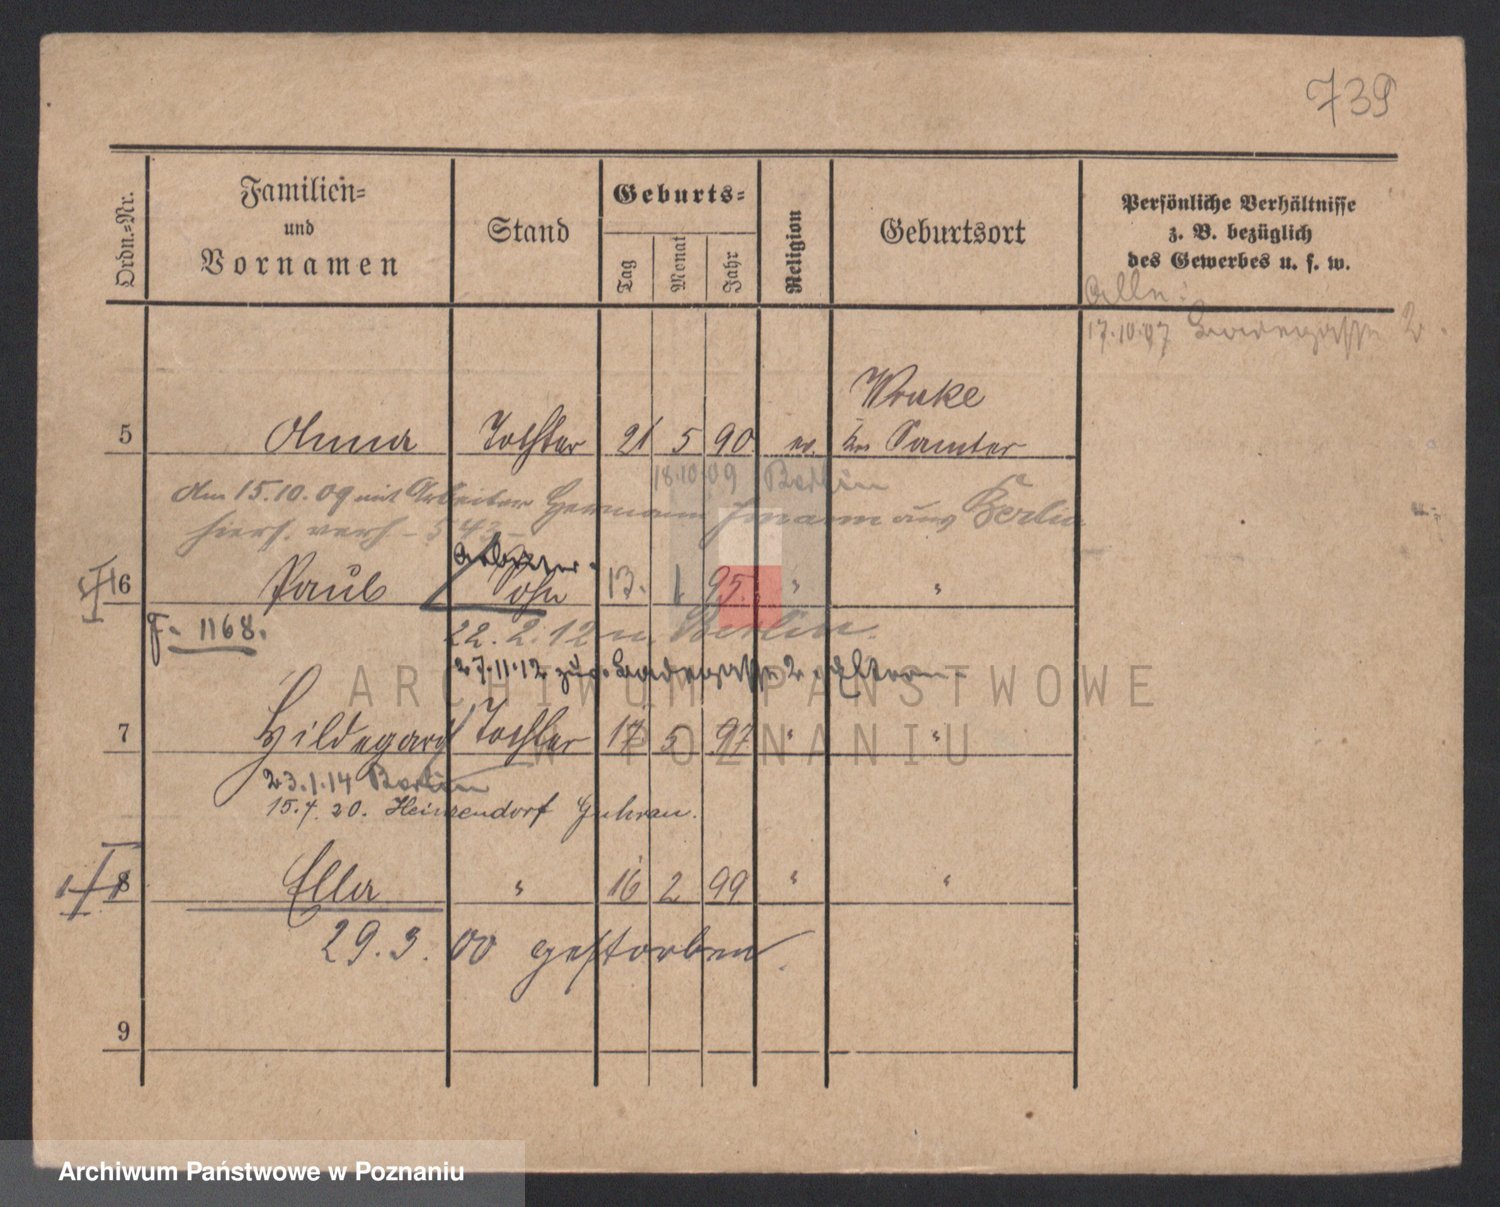 739
Ordn.=Nr.
Familien=
und
Vornamen
Stand
Geburts=
Tag
Monat
Jahr
Religion
Geburtsort
Persönliche Verhältnisse
z. B. bezüglich
des Gewerbes u. s. w.
Alle:
17.10.07 2.
Wronke
5 Anna Tochter 21 5 90 ev. Samter
18.10.09 Berlin
Am 15.10.09 mit Arbeiter Hermann aus Berlin
hiers. verh. - § 43 -
Arbeiter
6 Paul Sohn 13. 1. 95. " "
F. 1168.
22. 2. 12 n. Berlin.
27.11.12 zur. 2. Eltern.
ARCHIWUM PAŃSTWOWE
W POZNANIU
7 Hildegard Tochter 17 5 97 " "
23.1.14 Berlin
15.4.20. Heinzendorf Guhrau.
8 Ella " 16 2 99 " "
29.3.00 gestorben.
9
Archiwum Państwowe w Poznaniu